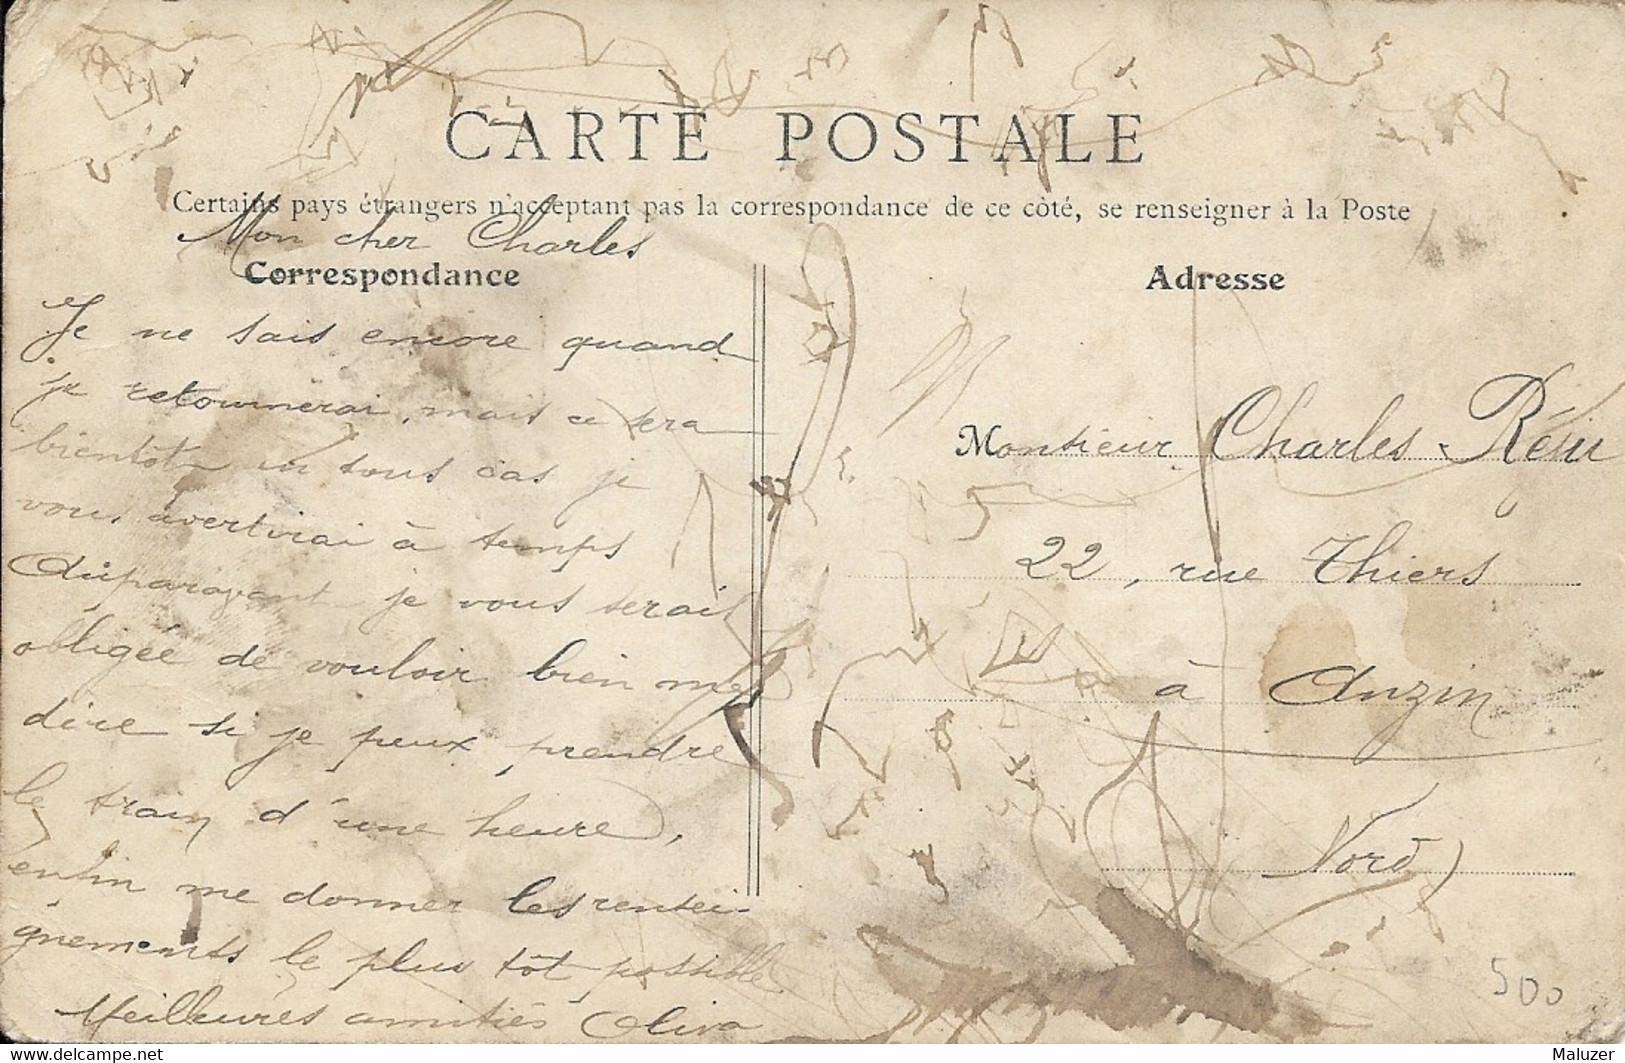 CARTE POSTALE
Certains pays étrangers n'acceptant pas la correspondance de ce côté, se renseigner à la Poste
Mon cher Charles
Correspondance
Je ne sais encore quand
je retournerai, mais ce sera
bientôt en tous cas je
vous avertirai à temps
Auparavant je vous serais
obligée de vouloir bien me
dire si je peux prendre
le train d'une heure,
enfin me donner les rensei-
gnements le plus tôt possible
Meilleures amitiés Oliva
Adresse
Monsieur Charles
22, rue Thiers
à Anzin
Nord)
500
delcampe.net
Maluzer